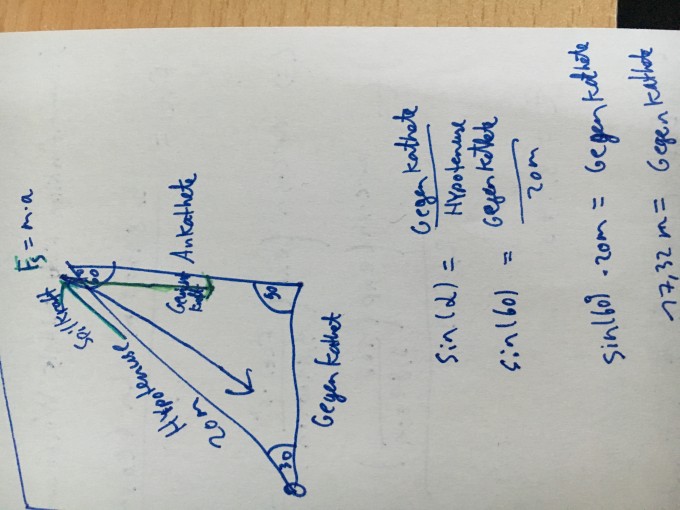 F_s = m·a
Seilkraft
60
Ankathete
Hypotenuse
20m
90
30
Gegenkathet
sin(α) = Gegenkathete / Hypotenuse
sin(60) = Gegenkathete / 20m
sin(60) · 20m = Gegenkathete
17,32 m = Gegenkathete